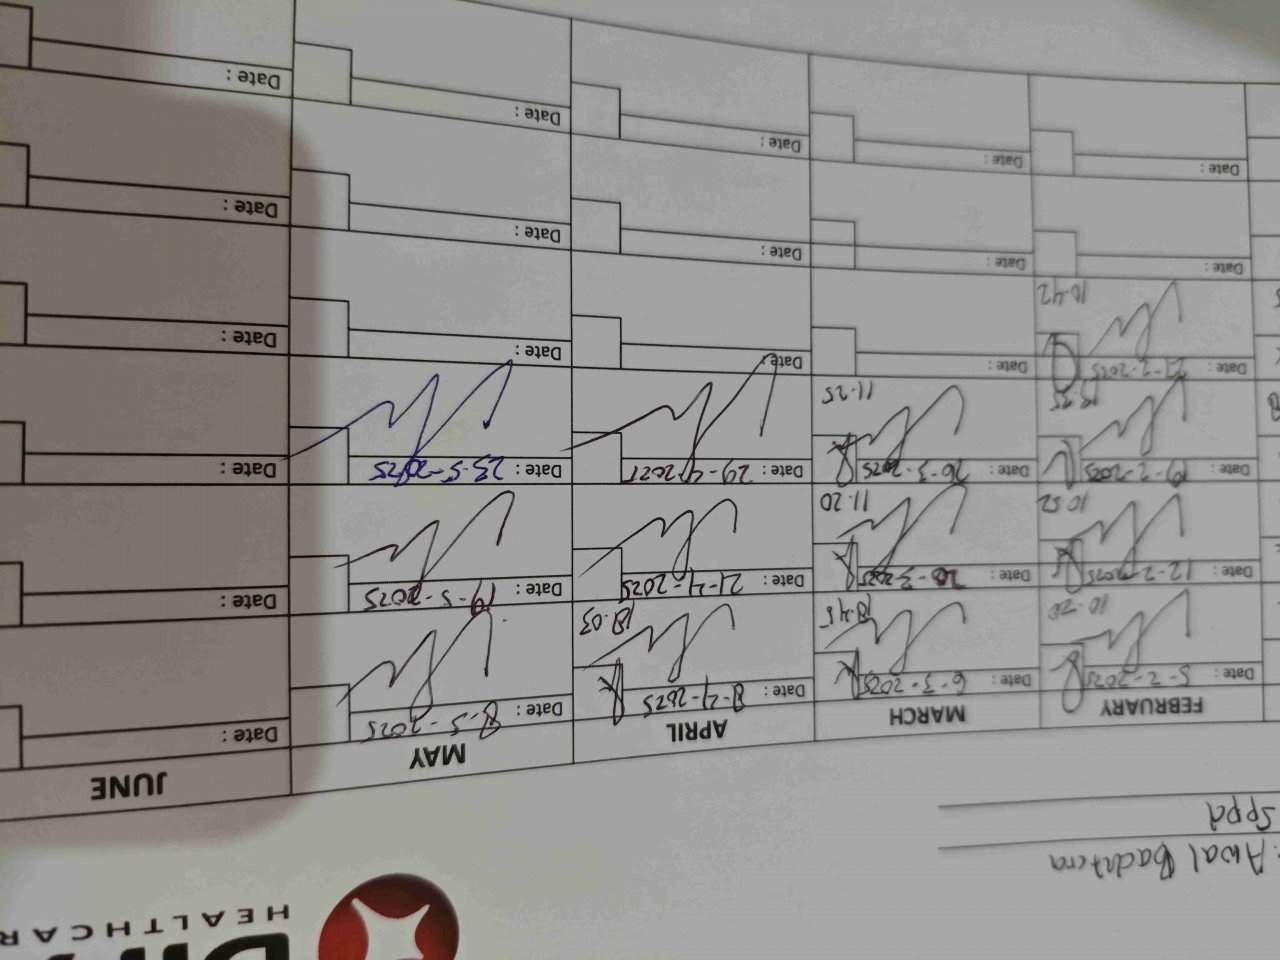 HEALTHCAR
: Awal
Sppd
FEBRUARY MARCH APRIL MAY JUNE
Date : 5-2-2025 Date : 6-3-2025 Date : 8-4-2025 Date : 8-5-2025 Date :
10.20 18.45 18.03
Date : 12-2-2025 Date : 20-3-2025 Date : 21-4-2025 Date : 19-5-2025 Date :
10.52 11.20
Date : 19-2-2025 Date : 26-3-2025 Date : 29-4-2025 Date : 23-5-2025 Date :
11.25
Date : Date : Date : Date : Date :
10.42
Date : Date : Date : Date : Date :
Date : Date : Date : Date : Date :